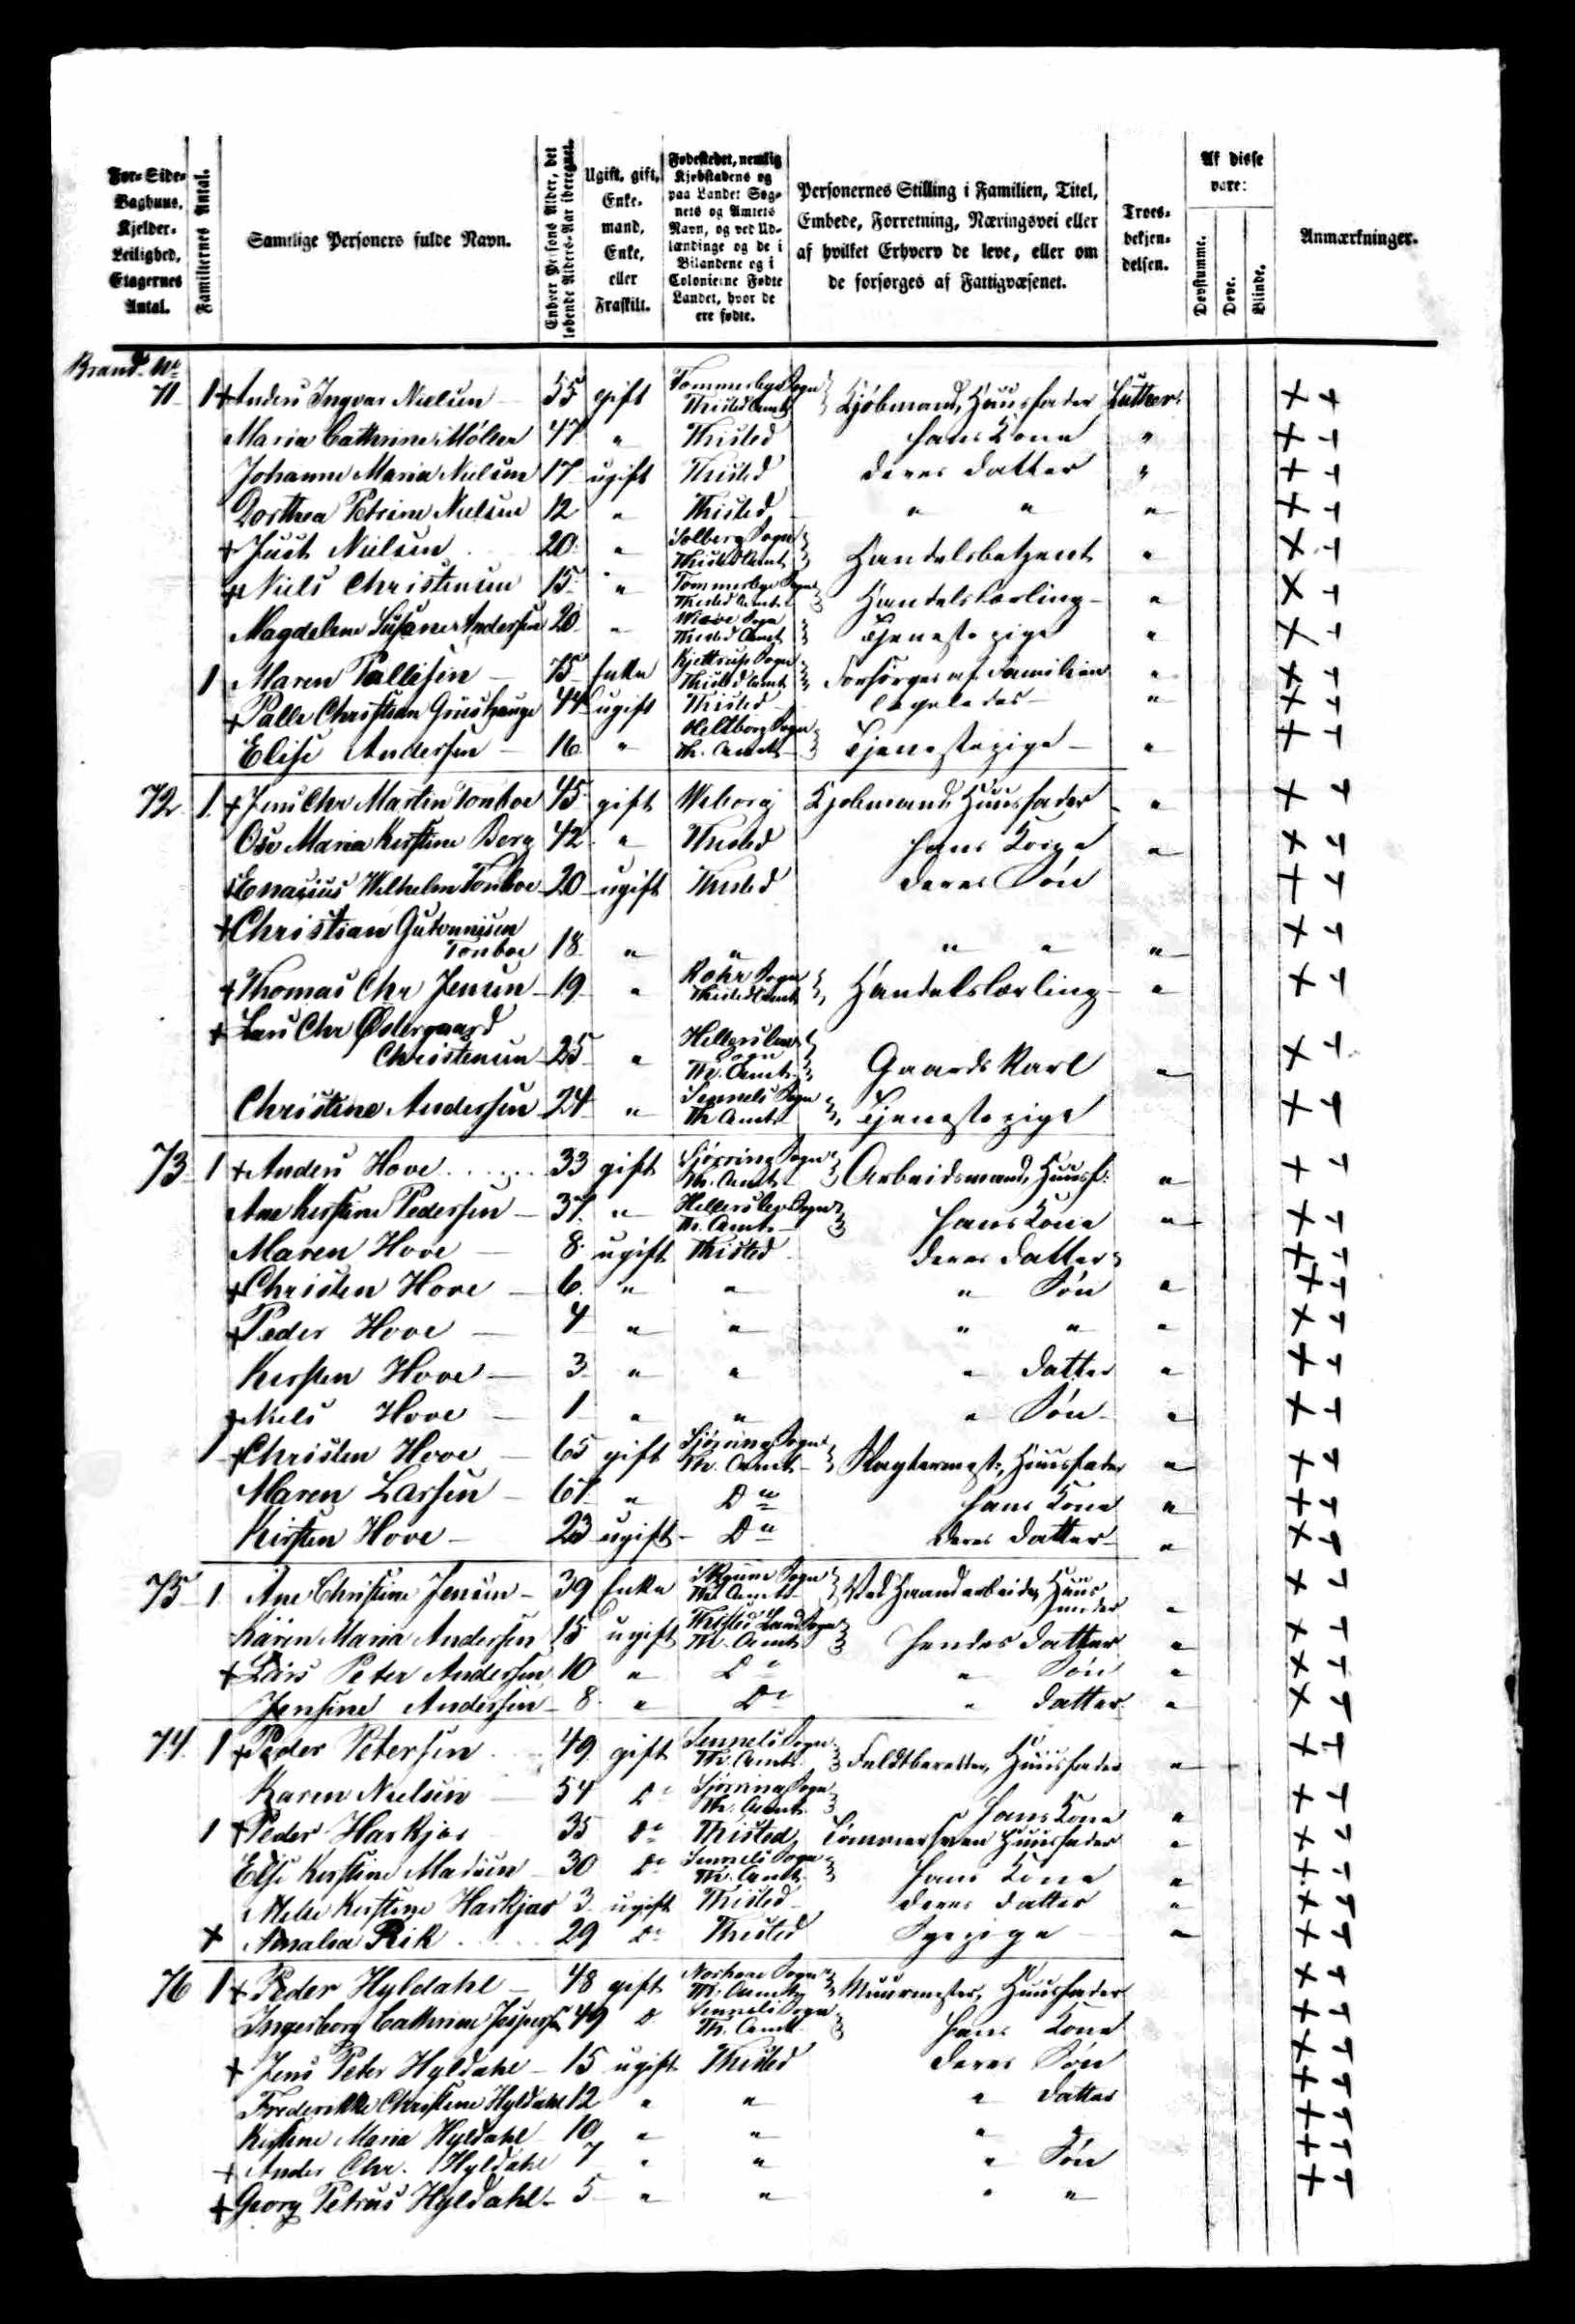 For- Side-
Baghuus,
Kjelder-
Leilighed,
Etagernes
Antal.
Familiernes Antal.
Samtlige Personers fulde Navn.
Enhver Persons Alder, det
løbende Alders-Aar iberegnet.
Ugift, gift,
Enke-
mand,
Enke,
eller
Fraskilt.
Fødestedet, nemlig
Kjøbstadens og
paa Landet Sog-
nets og Amtets
Navn, og ved Ud-
lændinge og de i
Bilandene og i
Colonierne Fødte
Landet, hvor de
ere fødte.
Personernes Stilling i Familien, Titel,
Embede, Forretning, Næringsvei eller
af hvilket Erhverv de leve, eller om
de forsørges af Fattigvæsenet.
Troes-
bekjen-
delsen.
Af disse
vare:
Døvstumme.
Døve.
Blinde.
Anmærkninger.
Brand. No
71 1 + Anders Ingvar Nielsen 55 gift Tommerbye Sogn Thisted Amt Kjøbmand, Huusfader Luther.
Maria Cathrine Møller 47 " Thisted hans Kone "
Johanne Maria Nielsen 17 ugift Thisted deres datter "
Dorthea Petrine Nielsen 12 " Thisted " " "
+ Just Nielsen 20 " Solberg Sogn Thisted Amt Handelsbetjent "
+ Niels Christensen 15 " Tommerbye Sogn Thisted Amt Handelslærling "
Magdelene Susane Andersen 20 " Sogn Thisted Amt Tjenestepige "
1 Maren Pallesen 75 Enke Kjettrup Sogn Thisted Amt Forsørges af Familien "
+ Palle Christian 44 ugift Thisted ligeledes "
Elise Andersen 16 " Heltborg Sogn Th. Amt Tjenestepige "
72 1 + Jens Chr Martin Tonboe 45 gift Wiborg Kjøbmand, Huusfader "
Ose Maria Kirstine Berg 42 " Thisted hans Kone "
+ Wilhelm Tonboe 20 ugift Thisted deres Søn
+ Christian
Tonboe 18 " " " " "
+ Thomas Chr Jensen 19 " Sogn Thisted Amt Handelslærling "
+ Lars Chr Østergaard
Christensen 25 " Hillerslev Sogn Th. Amt Gaards Karl "
Christine Andersen 24 " Sennels Sogn Th Amt Tjenestepige
73 1 + Anders Hove 33 gift Sjørring Sogn Th. Amt Arbeidsmand, Huusf: "
Ane Kirstine Pedersen 37 " Hillerslev Sogn Th. Amt hans Kone "
Maren Hove 8 ugift Thisted deres datter
+ Christen Hove 6 " " " Søn "
+ Peder Hove 4 " " " " "
Kirsten Hove 3 " " " datter "
+ Niels Hove 1 " " " Søn "
1 + Christen Hove 65 gift Sjørring Sogn Th. Amt Slagtermest:, Huusfader "
Maren Larsen 67 " Do hans Kone "
Kirsten Hove 23 ugift Do deres datter "
75 1 Ane Christine Jensen 39 Enke Skjinne Sogn Th. Amt Ved Haandarbeide, Huusmoder "
Karen Maria Andersen 15 ugift Thisted Land Sogn Th. Amt hendes datter "
+ Lars Peter Andersen 10 " Do " Søn "
Jensine Andersen 8 " Do " datter "
74 1 + Peder Petersen 49 gift Sennels Sogn Th. Amt Huusfader "
Karen Nielsen 54 Do Sjørring Sogn Th. Amt hans Kone "
1 + Peder Harkjær 35 Do Thisted Tømmersvend Huusfader "
Else Kirstine Madsen 30 Do Sennels Sogn Th. Amt hans Kone "
Mette Kirstine Harkjær 3 ugift Thisted deres datter "
+ Amalia Riik 29 Do Thisted Syepige "
76 1 + Peder Hyldahl 48 gift Norhaae Sogn Th. Amt Muurmester, Huusfader
Ingerborg Cathrine Jespersen 49 Do Sennels Sogn Th. Amt hans Kone
+ Jens Peter Hyldahl 15 ugift Thisted deres Søn
Frederikke Christine Hyldahl 12 " " " datter
Kirstine Maria Hyldahl 10 " " " "
+ Anders Chr. Hyldahl 7 " " " Søn
+ Georg Petrus Hyldahl 5 " " " "